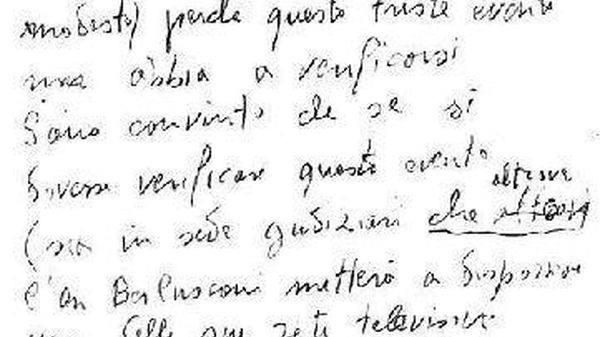 modesto) perché questo triste evento
non abbia a verificarsi
Sono convinto che se si
dovesse verificare questo evento
altrove
(sia in sede giudiziari che
l'on Berlusconi metterà a disposizione
una delle sue reti televisive